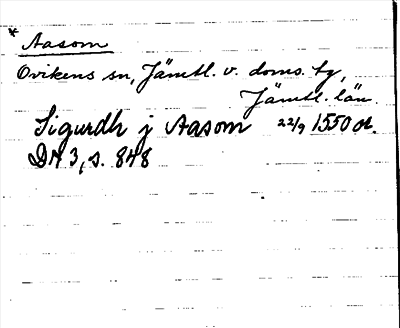 * Aasom
Ovikens sn, Jämtl. v. doms. tg,
Jämtl. län.
Sigurdh j Aasom 22/9 1550 or.
DN 3, s. 848